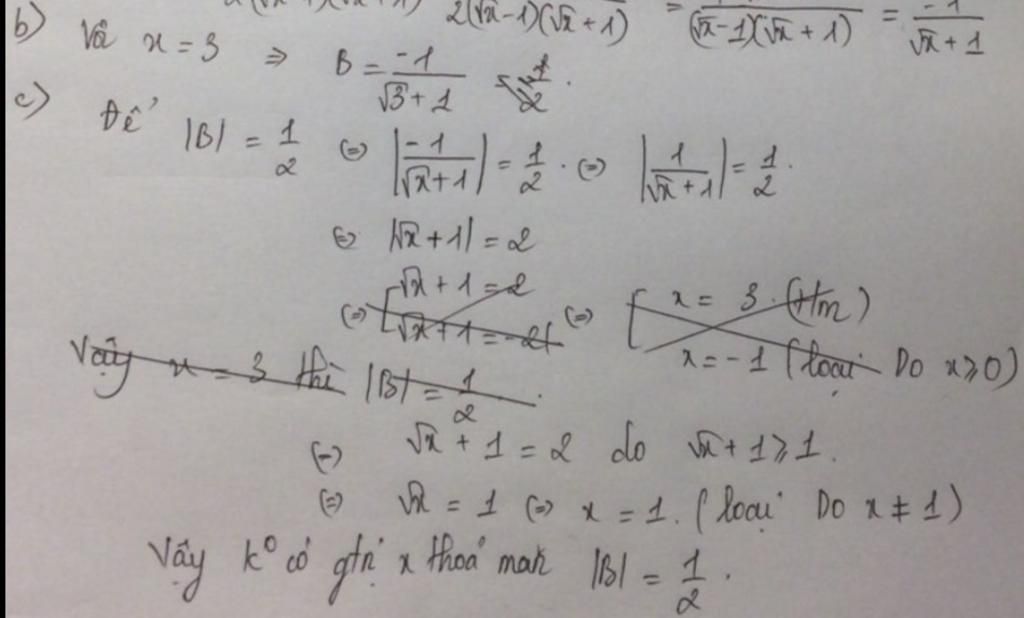 2(√x-1)(√x+1) = (√x-1)(√x+1) = -1/(√x+1)
b) Vơi x = 3 ⇒ B = -1/(√3+1)
c) Để |B| = 1/2 (=) |-1/(√x+1)| = 1/2 . (=) |1/(√x+1)| = 1/2 .
(=) |√x+1| = 2
(=) [√x + 1 = 2 (=) [ x = 3 (tm)
√x+1 = -2 x = -1 (loại Do x⩾0)
Vậy x = 3 thì |B| = 1/2 .
(=) √x + 1 = 2 do √x+1⩾1.
(=) √x = 1 (=) x = 1. (loại Do x ≠ 1)
Vậy k° có gtrị x thoả mãn |B| = 1/2 .